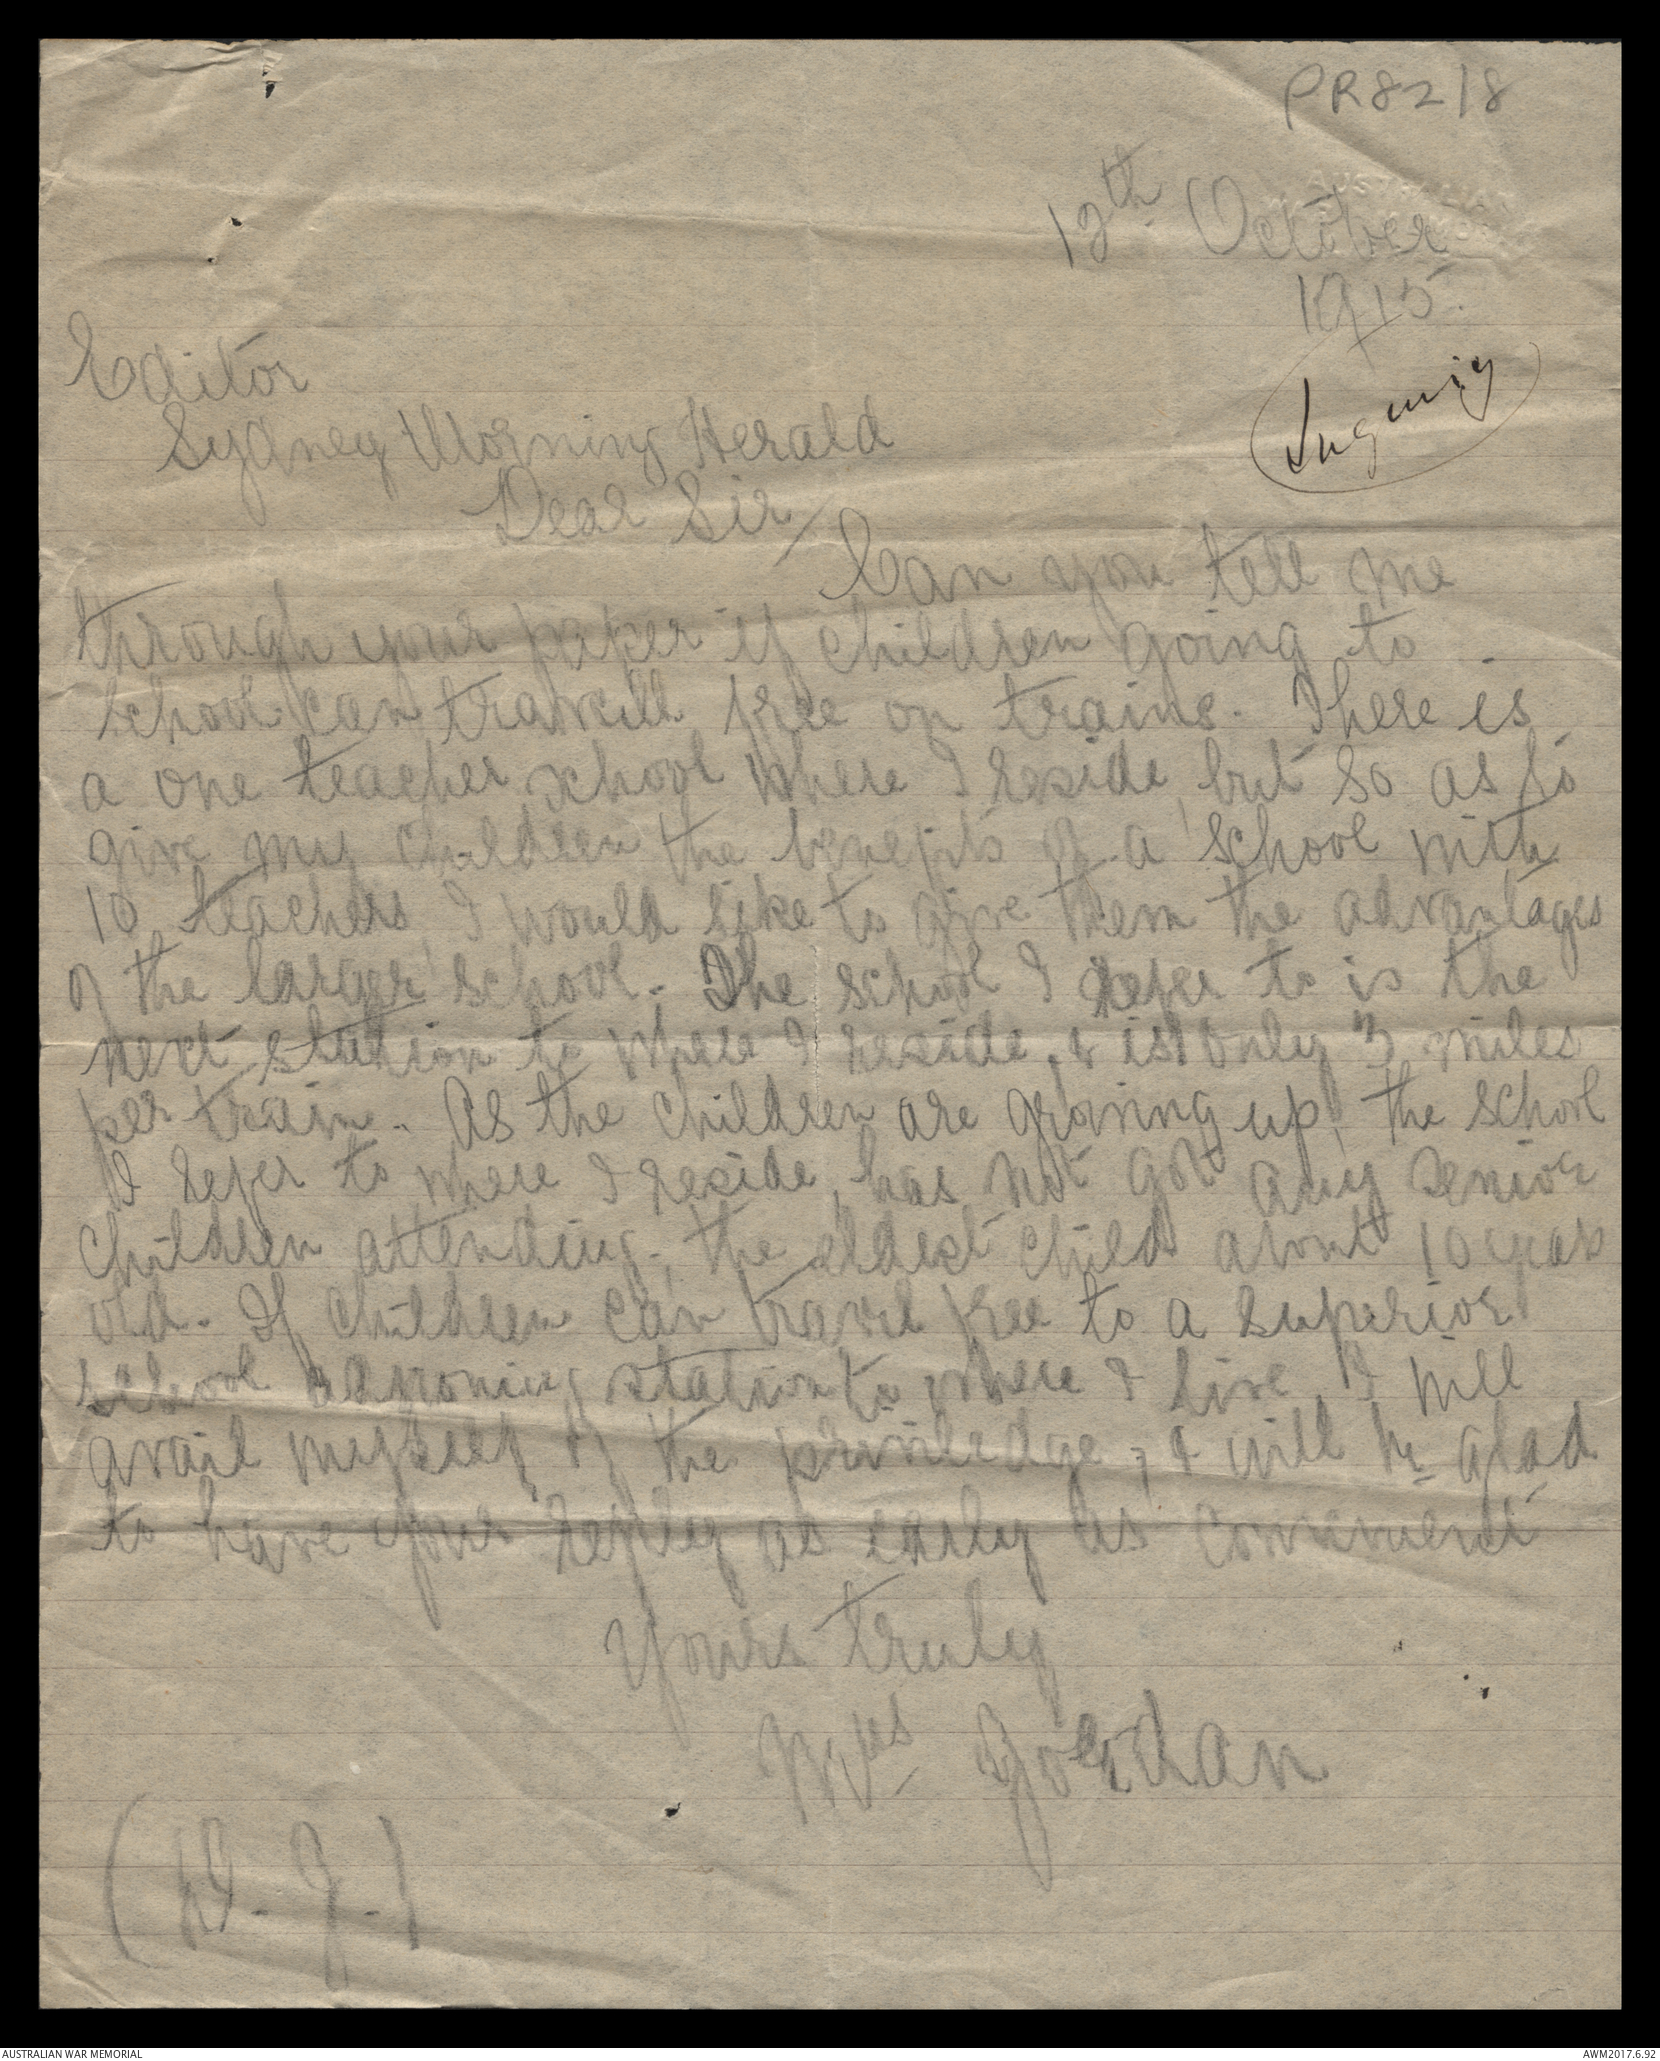 PR82/8
12th October
1915.
Editor
Sydney Morning Herald
Dear Sir/
Can you tell me
through your paper if children going to
school can travell free on trains. There is
a one teacher school where I reside, but so as to
give my children the benefits of a school with
10 teachers, I would like to give them the advantages
of the larger school. The school I refer to is the
next station to where I reside, & is only 3 miles
per train. As the children are growing up, the school
I refer to where I reside, has not got any senior
children attending, the eldest child about 10 years
old. If children can travel free to a superior
school adjoning station to where I live, I will
avail myself of the priviledge, & will be glad
to have your reply as early as convenient
Yours truly
Mrs Jordan
AUSTRALIAN WAR MEMORIAL
AWM2017.6.92